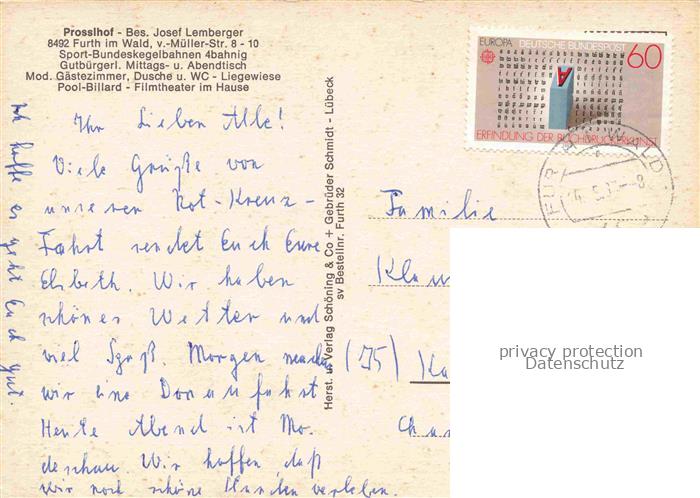 Prosslhof - Bes. Josef Lemberger
8492 Furth im Wald, v.-Müller-Str. 8 - 10
Sport-Bundeskegelbahnen 4bahnig
Gutbürgerl. Mittags- u. Abendtisch
Mod. Gästezimmer, Dusche u. WC - Liegewiese
Pool-Billard - Filmtheater im Hause
Ihr Lieben Alle!
Viele Grüße von
unserer Rot-Kreuz-
Fahrt sendet Euch Eure
Elsbeth. Wir haben
schönes Wetter und
viel Spaß. Morgen machen
wir eine Donaufahrt
Heute Abend ist Mo-
denschau. Wir hoffen, daß
wir noch schöne Stunden verleben.
Ich hoffe es geht Euch gut.
Herst. u. Verlag Schöning & Co + Gebrüder Schmidt - Lübeck
sv Bestellnr. Furth 32
EUROPA DEUTSCHE BUNDESPOST 60
A
ERFINDUNG DER BUCHDRUCKERKUNST
Familie
privacy protection
Datenschutz